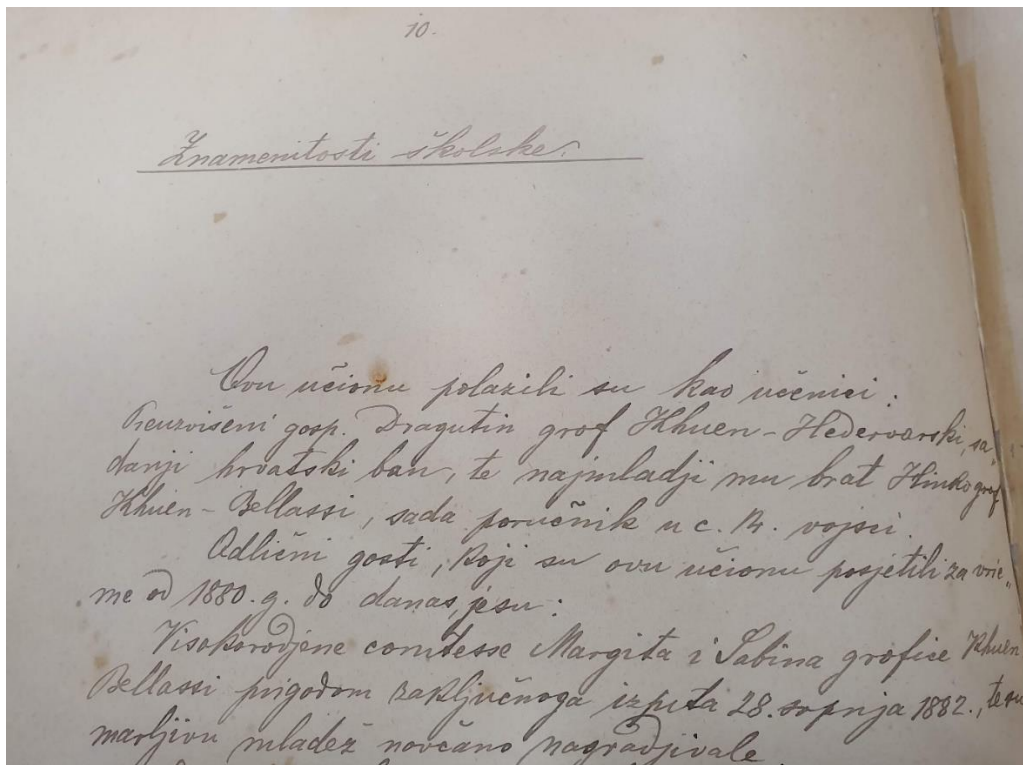 10.
Znamenitosti školske.
Ovu učionu polazili su kao učenici:
Preuzvišeni gosp. Dragutin grof Khuen-Hedervarski, sa„
danji hrvatski ban, te najmladji mu brat Hinko grof
Khuen-Bellassi, sada poručnik u c. kr. vojsci.
Odlični gosti, koji su ovu učionu posjetili za vrie„
me od 1880. g. do danas, jesu:
Visokorodjene comtesse Margita i Sabina grofice Khuen
Bellassi prigodom zaključnoga izpita 28. srpnja 1882., te su
marljivu mladež novčano nagradjivale